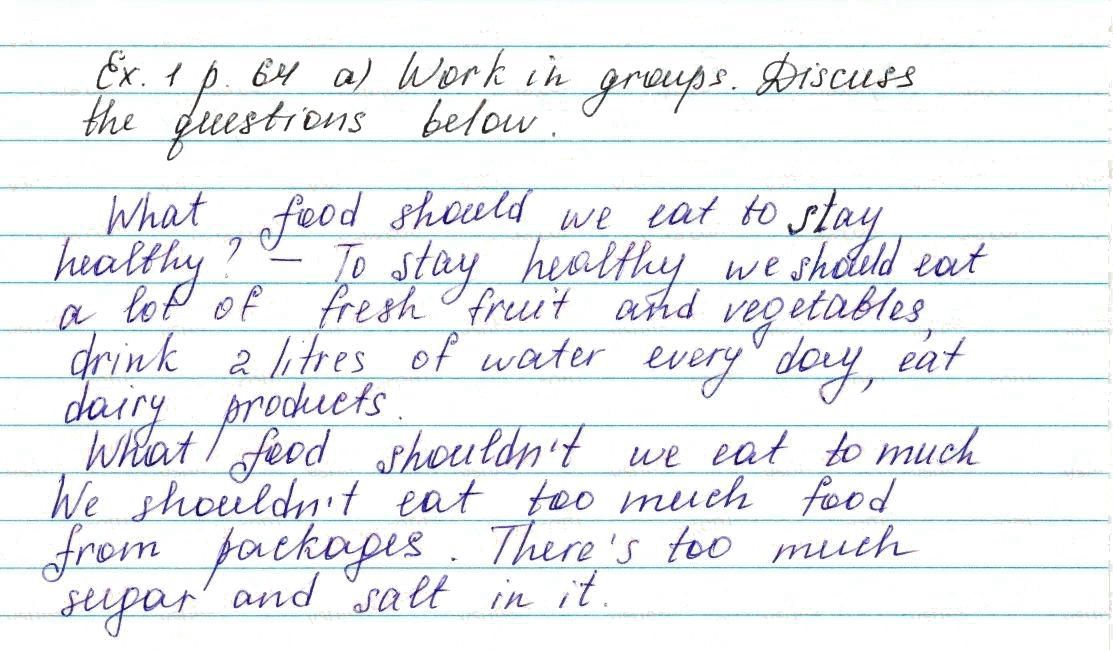 Ex. 1 p. 64 a) Work in groups. Discuss
the questions below.
What food should we eat to stay
healthy? – To stay healthy we should eat
a lot of fresh fruit and vegetables,
drink 2 litres of water every day, eat
dairy products.
What food shouldn't we eat to much
We shouldn't eat too much food
from packages. There's too much
sugar and salt in it.